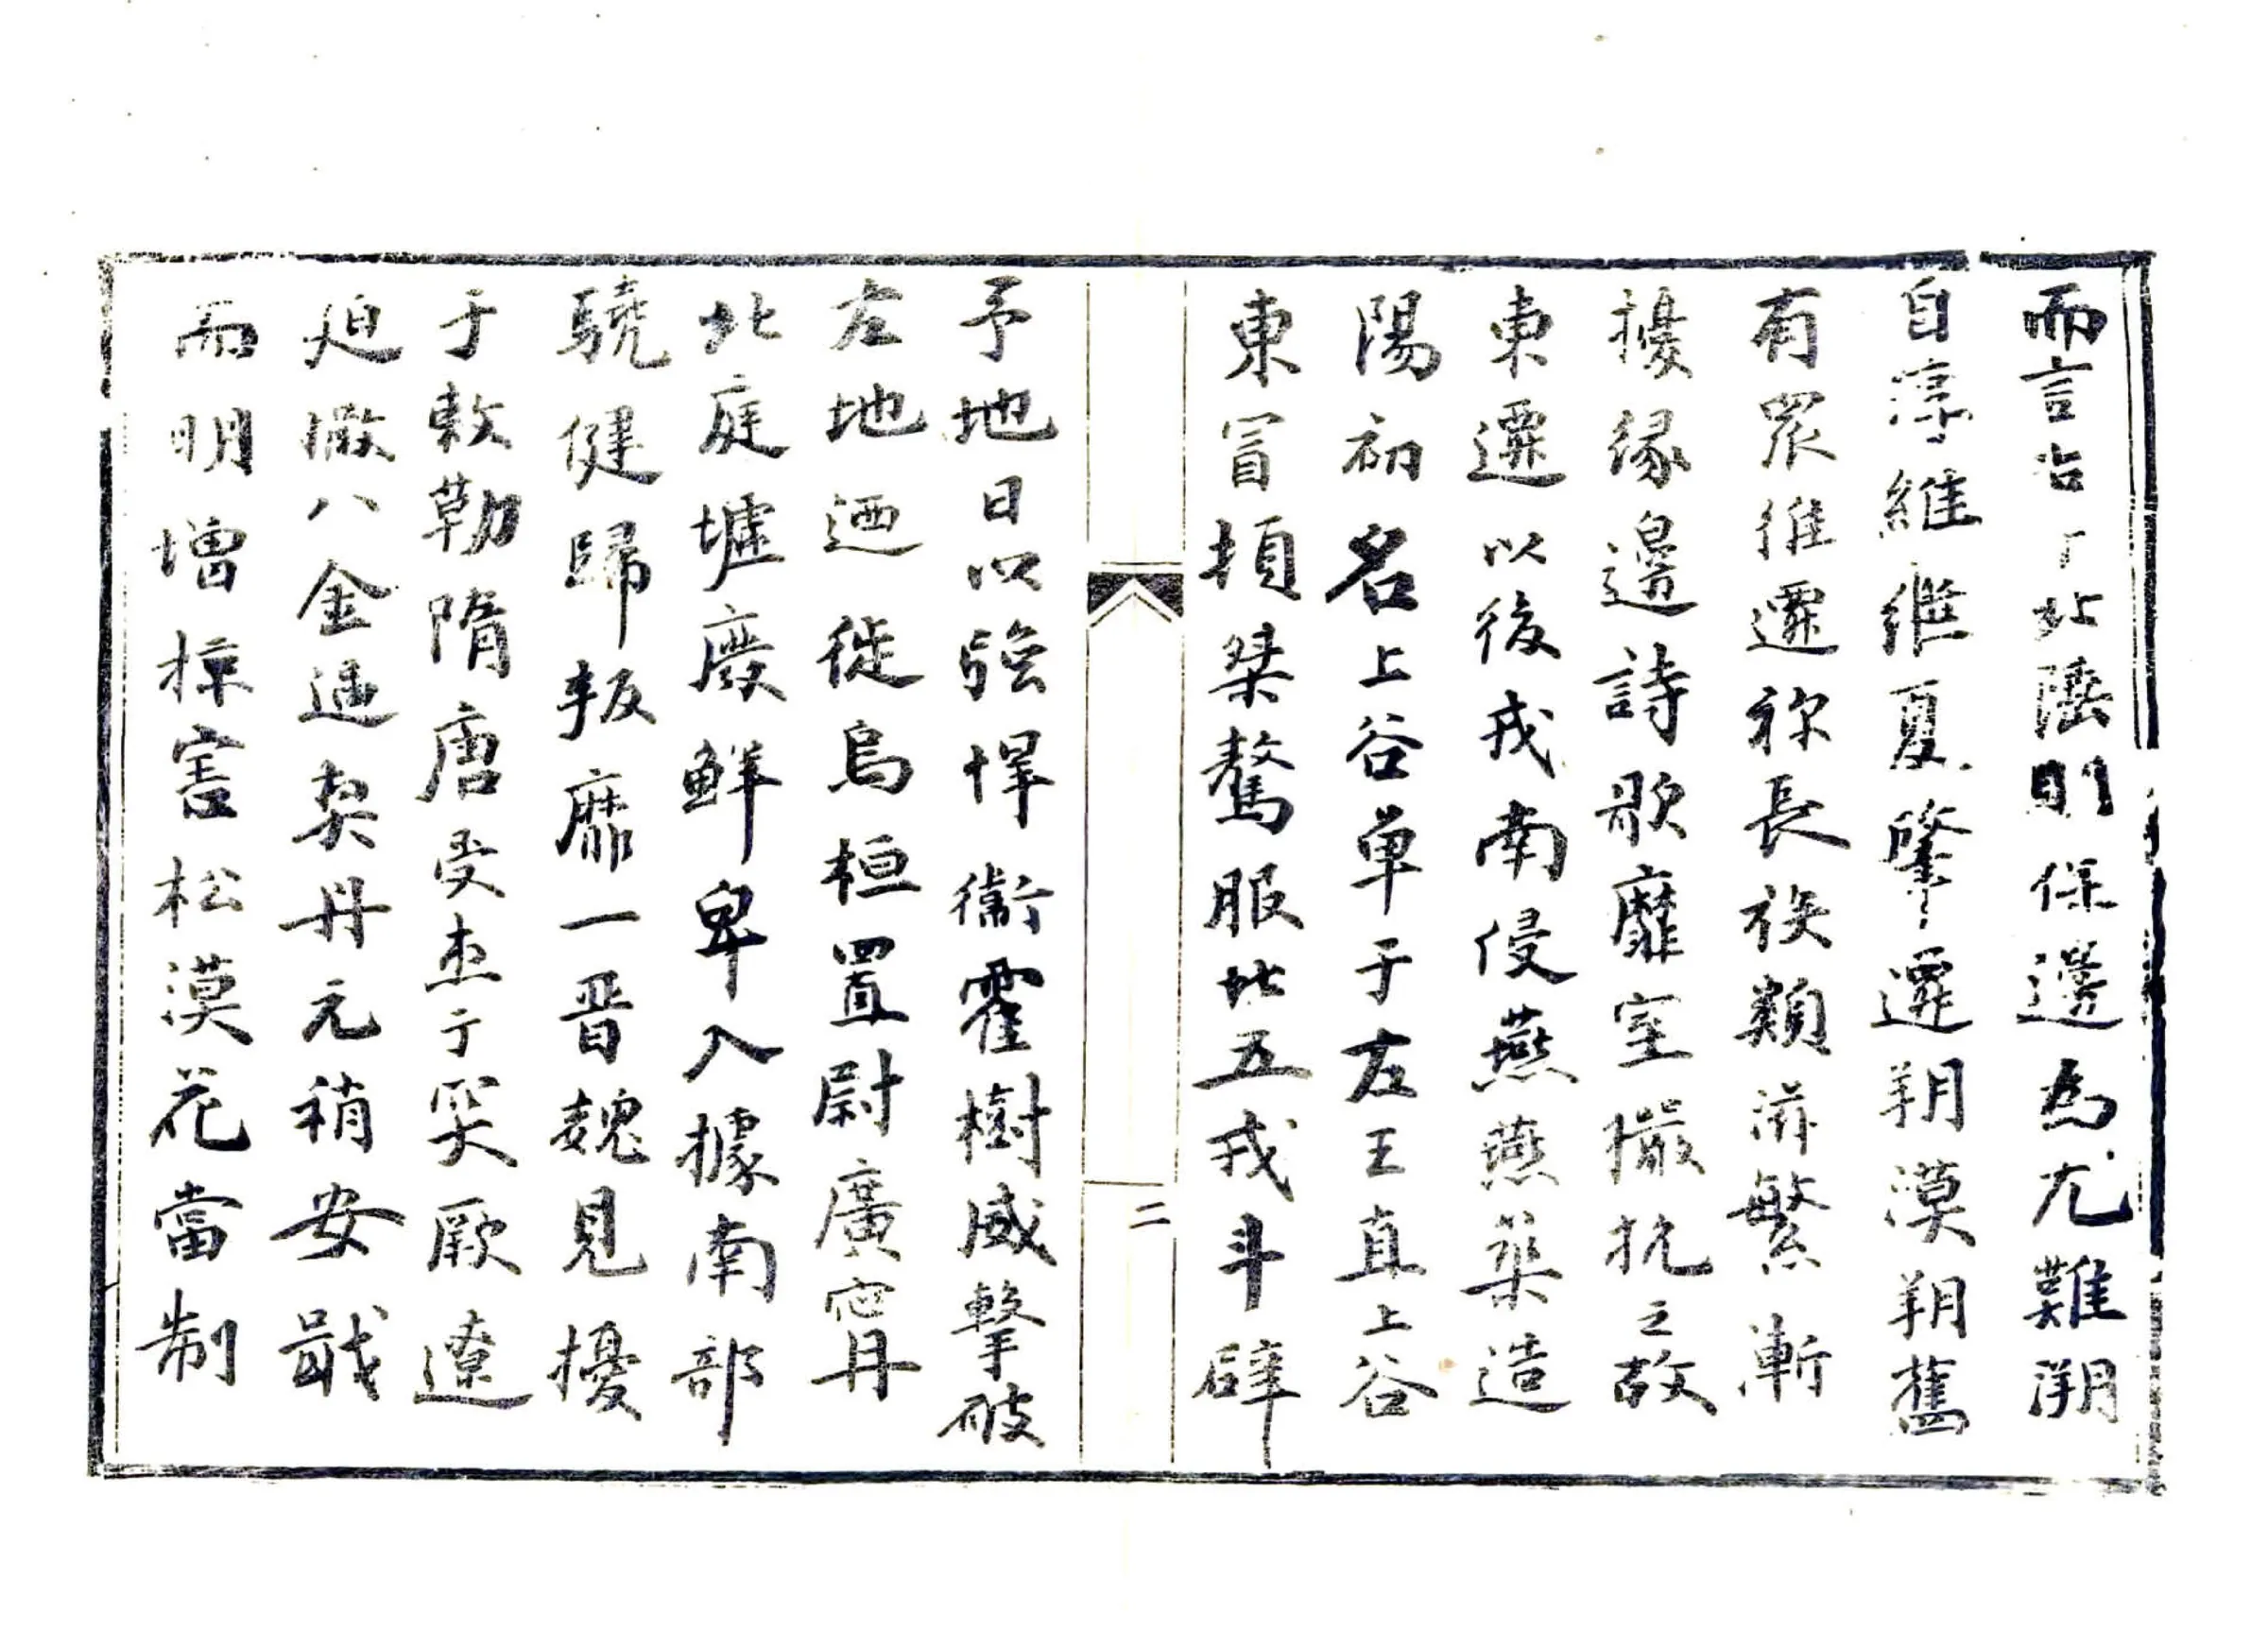 而言古北陲則保邊為尤難溯
自淳維繼夏肇遷朔漠朔舊
有眾徙遷祢長族類滋繁漸
擾緣邊詩歌靡室獫狁之故
東遷以後戎南侵燕燕築造
陽初名上谷單于左王直上谷
東冒頓桀驁服北五戎斗辟
二
予地日以強悍衛霍樹威擊破
左地迺徙烏桓置尉廣甯丹
北庭墟廢鮮卑入據南部
驍健歸叛靡一晋魏見擾
于敕勒隋唐受患于突厥遼
迫厥八金遇契丹元稍安戢
而明增掠害松漠花當制